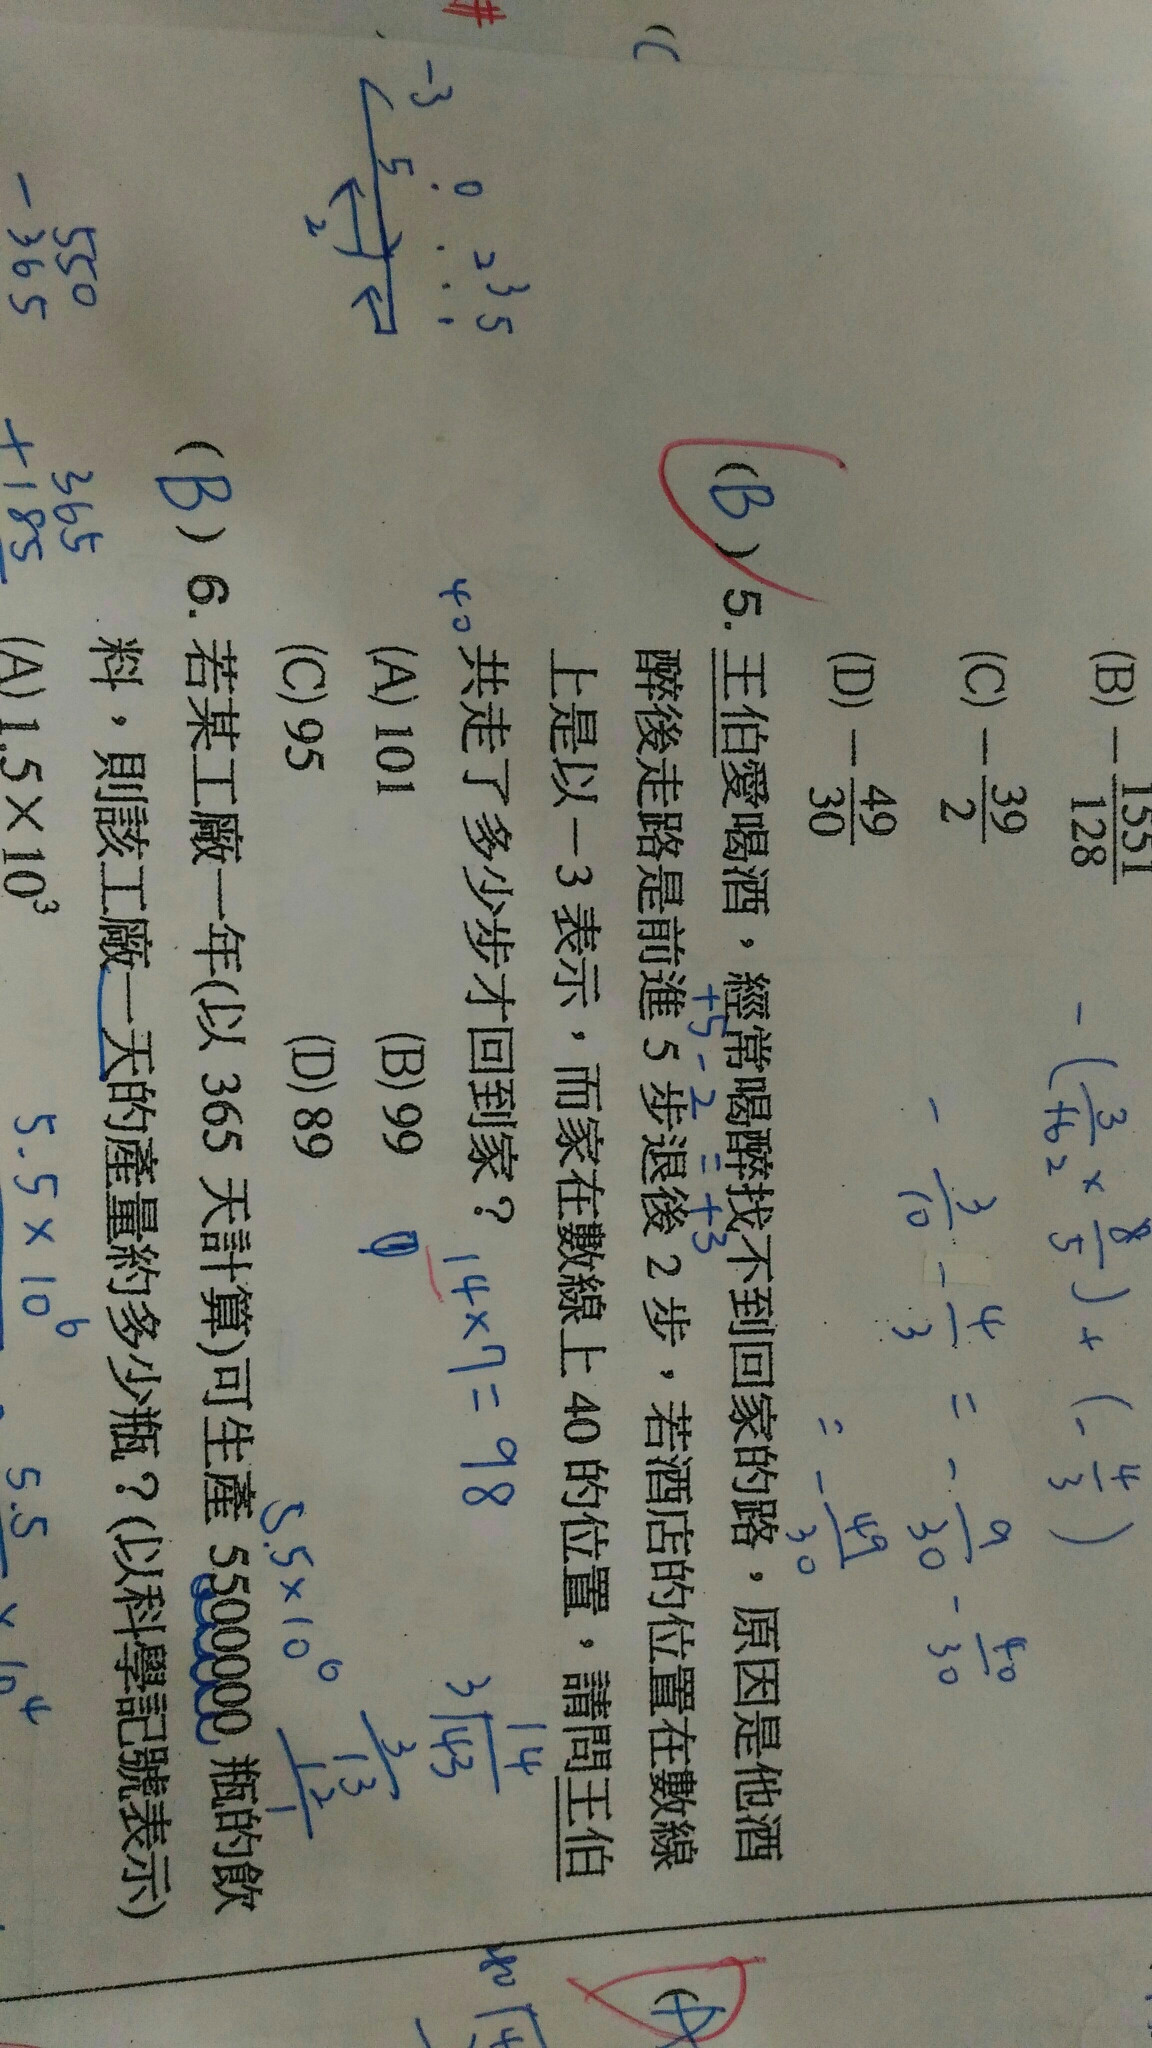 (B) －1551/128
－(3/16 2 × 8/5) + (－4/3)
(C) －39/2
－ 3/10 － 4/3 = － 9/30 － 40/30
(D) －49/30
= － 49/30
(B) 5. 王伯愛喝酒，經常喝醉找不到回家的路，原因是他酒
+5 － 2 = +3
醉後走路是前進 5 步退後 2 步，若酒店的位置在數線
上是以－3 表示，而家在數線上 40 的位置，請問王伯
40
共走了多少步才回到家？
14×7 = 98
14
3 43
3
13
12
1
(A) 101 (B) 99
(C) 95 (D) 89
-3 0 2 3 5
5
2
5.5×10⁶
(B) 6. 若某工廠一年(以 365 天計算)可生產 5500000 瓶的飲
料，則該工廠一天的產量約多少瓶？(以科學記號表示)
550
－365
365
+185
5.5×10⁶
5.5 × 10⁴
(A) 1.5×10³